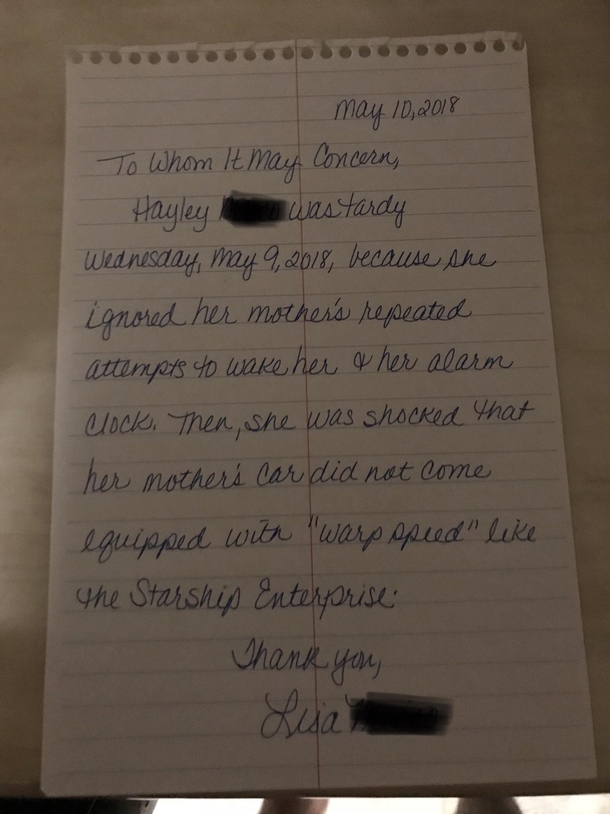 May 10, 2018
To Whom It May Concern,
Hayley was tardy
Wednesday, May 9, 2018, because she
ignored her mother's repeated
attempts to wake her & her alarm
clock. Then, she was shocked that
her mother's car did not come
equipped with "warp speed" like
the Starship Enterprise.
Thank you,
Lisa